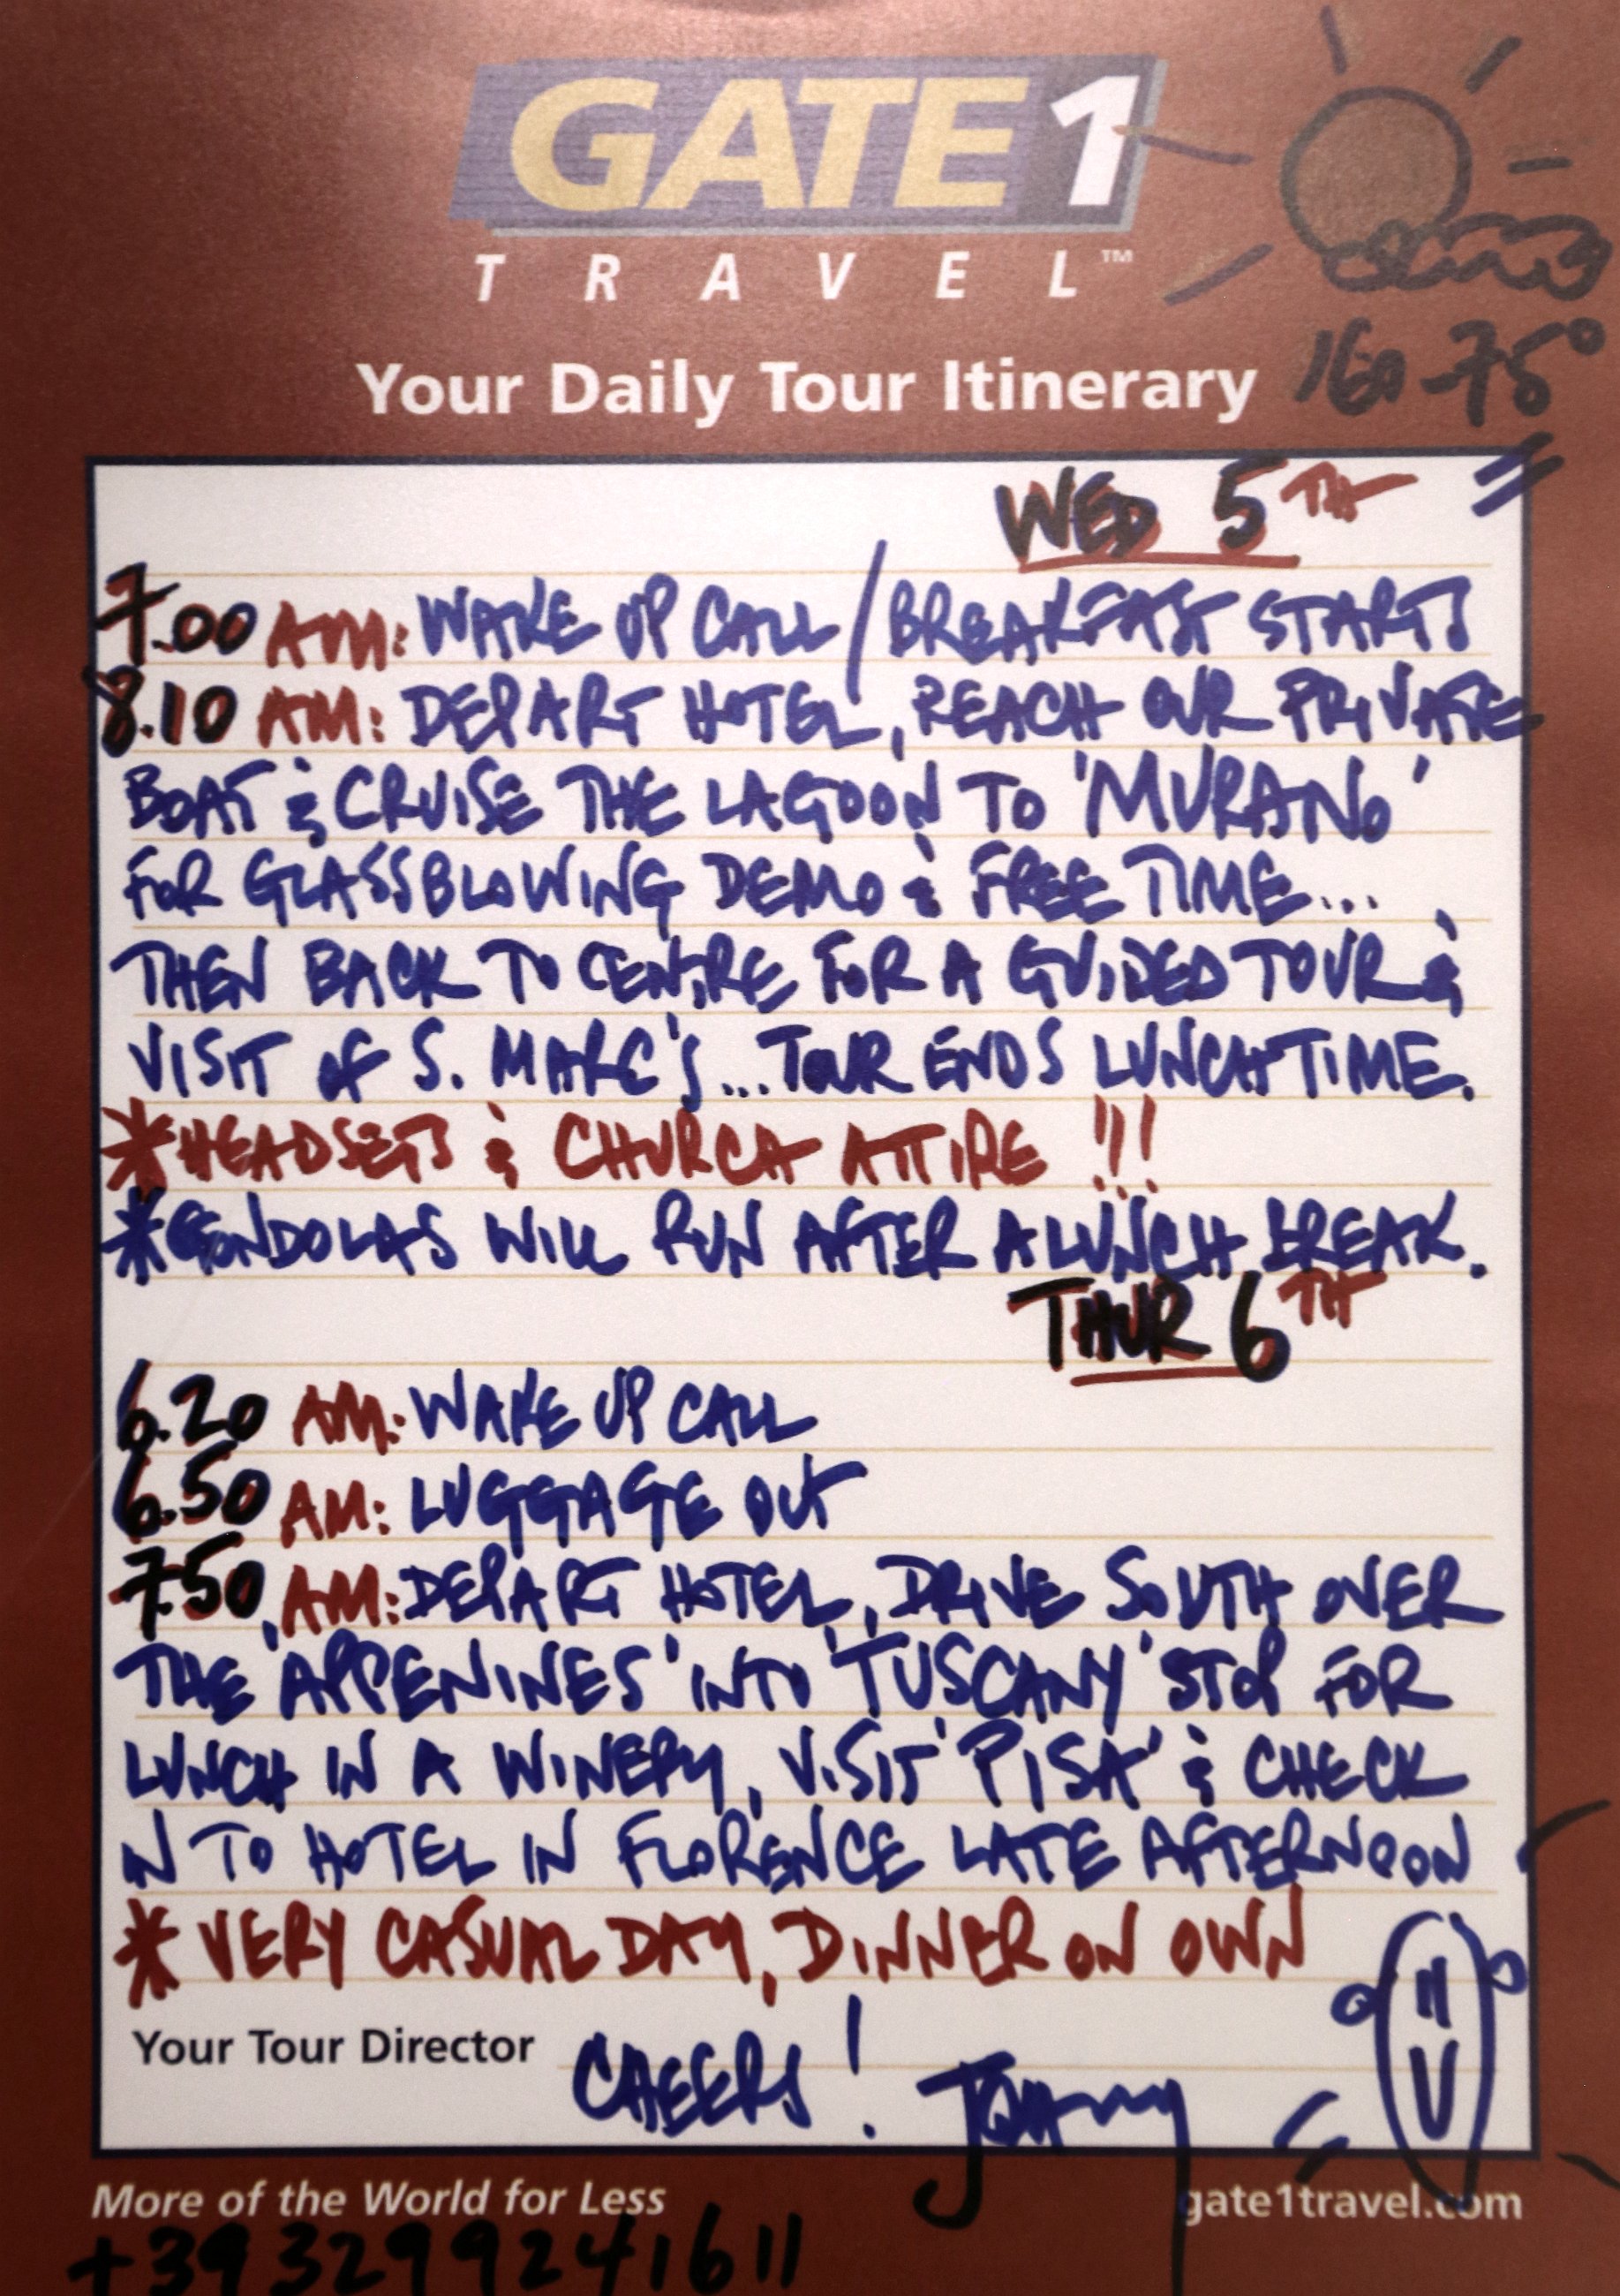 GATE 1
TRAVEL™
Your Daily Tour Itinerary
75°
WED 5TH
7.00 AM: WAKE UP CALL / BREAKFAST STARTS
8.10 AM: DEPART HOTEL, REACH OUR PRIVATE
BOAT & CRUISE THE LAGOON TO 'MURANO'
FOR GLASSBLOWING DEMO & FREE TIME...
THEN BACK TO CENTRE FOR A GUIDED TOUR &
VISIT OF S. MARC'S...TOUR ENDS LUNCHTIME.
*HEADSETS & CHURCH ATTIRE !!!
*GONDOLAS WILL RUN AFTER A LUNCH BREAK.
THUR 6TH
6.20 AM: WAKE UP CALL
6.50 AM: LUGGAGE OUT
7.50 AM: DEPART HOTEL, DRIVE SOUTH OVER
THE 'APPENINES' INTO 'TUSCANY' STOP FOR
LUNCH IN A WINERY, VISIT 'PISA' & CHECK
IN TO HOTEL IN FLORENCE LATE AFTERNOON
* VERY CASUAL DAY, DINNER ON OWN
Your Tour Director CHEERS!
More of the World for Less gate1travel.com
+393299241611